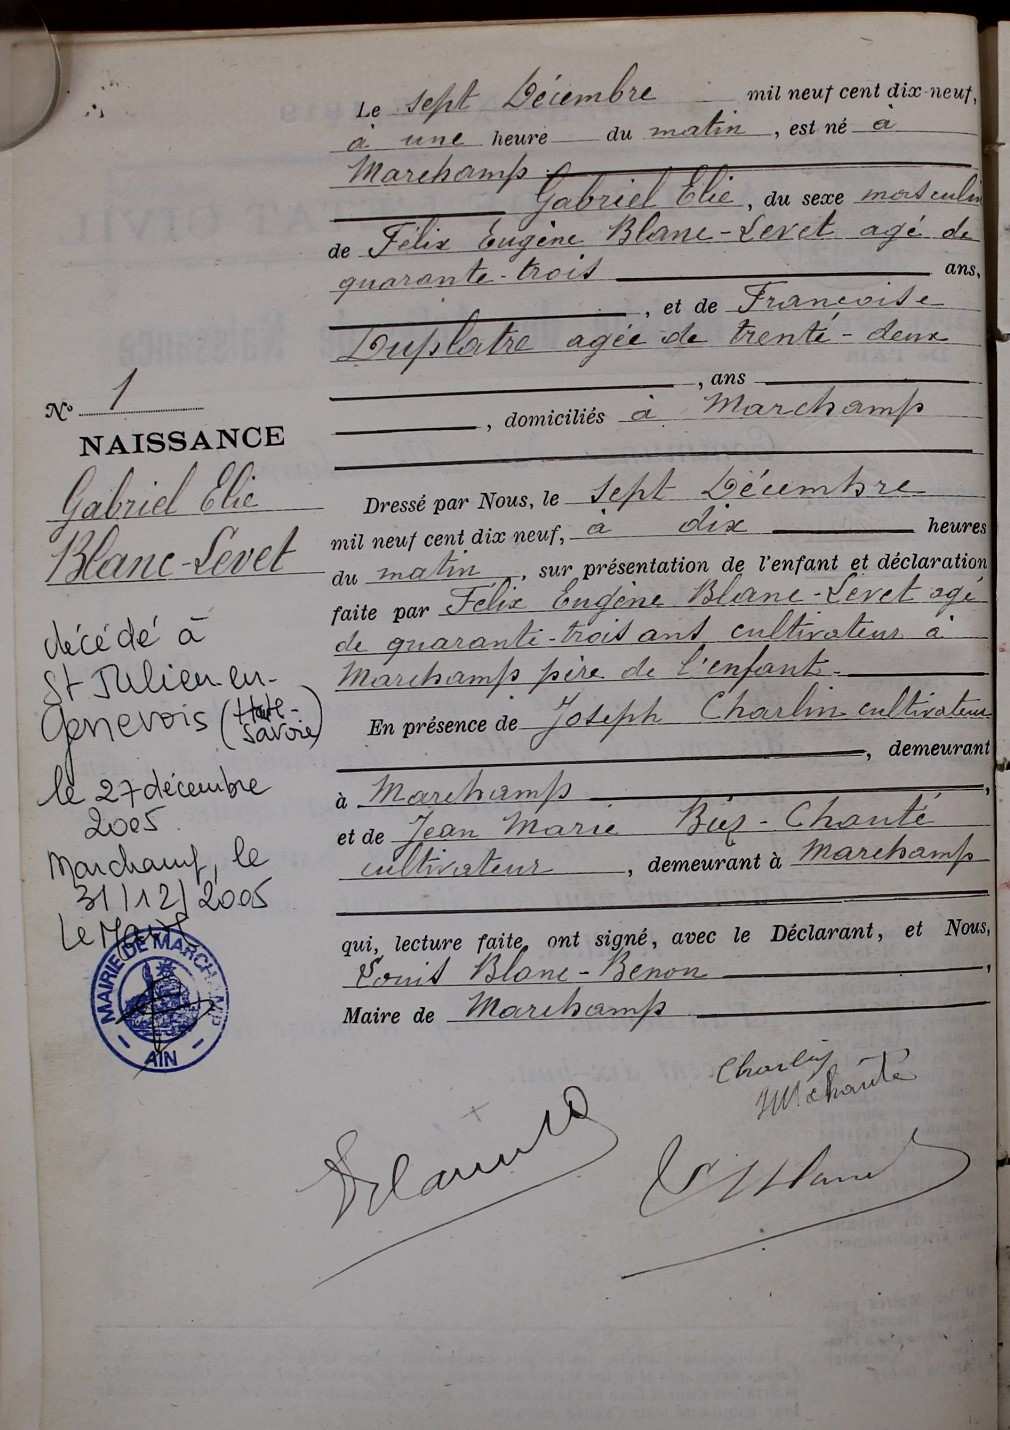 Le sept Décembre mil neuf cent dix-neuf,
à une heure du matin, est né à
Marchamp
Gabriel Elie, du sexe masculin
de Félix Eugène Blanc-Levet agé de
quarante-trois ans,
, et de Françoise
Duplatre agée de trente-deux
, ans
, domiciliés à Marchamp
N° 1
NAISSANCE
Gabriel Elie
Blanc-Levet
décédé à
St Julien en-
Genevois (Haute-
Savoie)
le 27 décembre
2005.
Marchamp, le
31/12/2005
Le Maire
MAIRIE DE MARCHAMP
- AIN -
Dressé par Nous, le sept Décembre
mil neuf cent dix neuf, à dix heures
du matin, sur présentation de l'enfant et déclaration
faite par Félix Eugène Blanc-Levet agé
de quarante-trois ans cultivateur à
Marchamp père de l'enfant.
En présence de Joseph Charlin cultivateur
, demeurant
à Marchamp,
et de Jean Marie Biez-Chanté
cultivateur, demeurant à Marchamp
qui, lecture faite, ont signé, avec le Déclarant, et Nous,
Louis Blanc-Benon,
Maire de Marchamp
Charlin